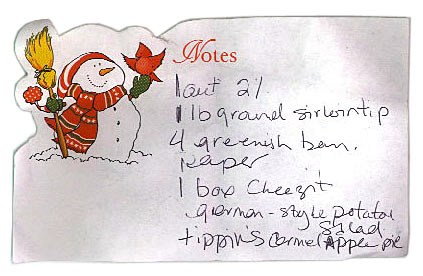 Notes
1 cart 2%
1 lb ground sirlointip
4 greenish ban.
Paper
1 box Cheezit
german-style potatoe
Salad
tippin's Carmel Apple pie